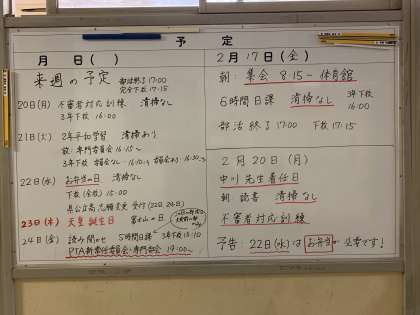 予定
月 日( )
来週の予定 部活終了17:00
完全下校17:15
20日(月) 不審者対応訓練 清掃なし
3年下校 16:00
21日(火) 2年平和学習 清掃あり
放:専門委員会 16:15〜
3年下校 委員なし
22日(水) お弁当の日 清掃なし
下校(全校) 15:00
県公立高 志願変更 受付(22日 24日)
23日(木) 天皇誕生日 富士山の日
24日(金) 読み聞かせ 5時間日課 3年下校 15:10
PTA新常任委員会・専門部会 19:00〜
2月17日(金)
朝:集会 8:15〜 体育館
6時間日課 清掃なし 3年下校
16:00
部活終了17:00 下校17:15
2月20日(月)
中川先生着任日
朝:読書 清掃なし
不審者対応訓練
予告:22日(水)は お弁当が必要です!